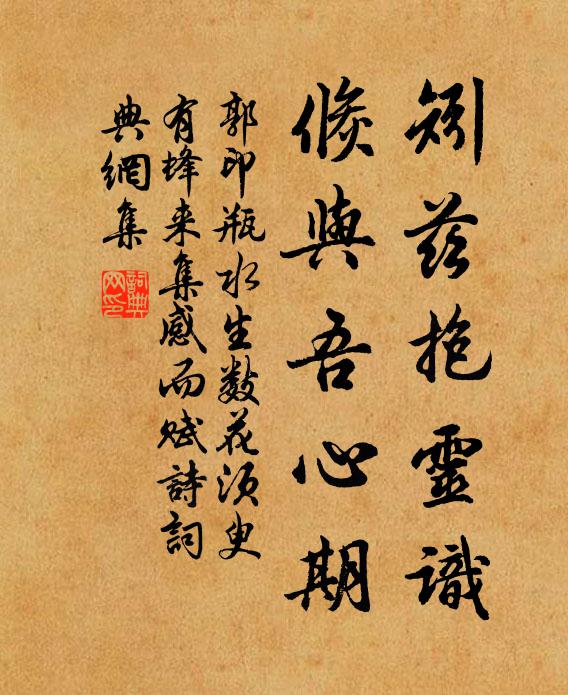 矧茲抱靈識
倏與吾心期
郭印瓶水生數花須臾
有蜂来集感而賦詩詞
典網集
詞典網印